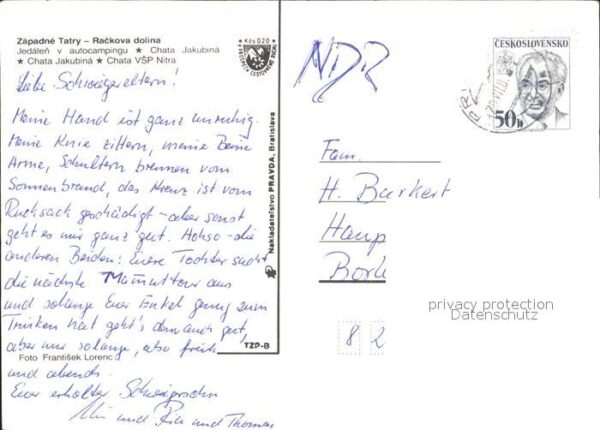 Západné Tatry – Račkova dolina
Jedáleň v autocampingu ★ Chata Jakubiná
★ Chata Jakubiná ★ Chata VŠP Nitra
Kčs 0,20
Liebe Schwiegereltern!
Meine Hand ist ganz unruhig.
Meine Knie zittern, meine Beine
Arme, Schultern brennen vom
Sonnenbrand, das Kreuz ist vom
Rucksack geschädigt – aber sonst
geht es mir ganz gut. Achso – die
anderen Beiden: Eure Tochter sucht
die nächste Mamuttour aus
und solange Euer Enkel genug zum
Trinken hat geht's dem auch gut,
aber nur solange, also früh
und abends.
Euer erholter Schwiegersohn
und und Thomas
Foto František Lorenc
TZP-B
Nakladateľstvo PRAVDA, Bratislava
NDR
ČESKOSLOVENSKO
50h
Fam.
H. Burkert
Haup
Bork
privacy protection
Datenschutz
8 2